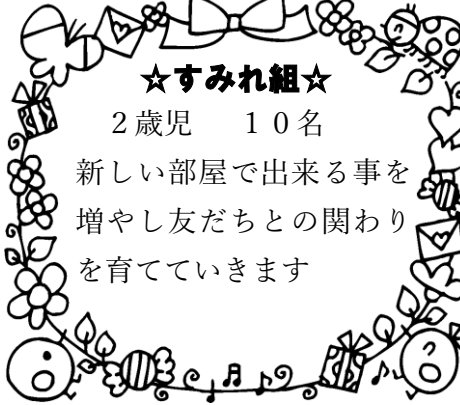 ☆すみれ組☆
２歳児　１０名
新しい部屋で出来る事を
増やし友だちとの関わり
を育てていきます